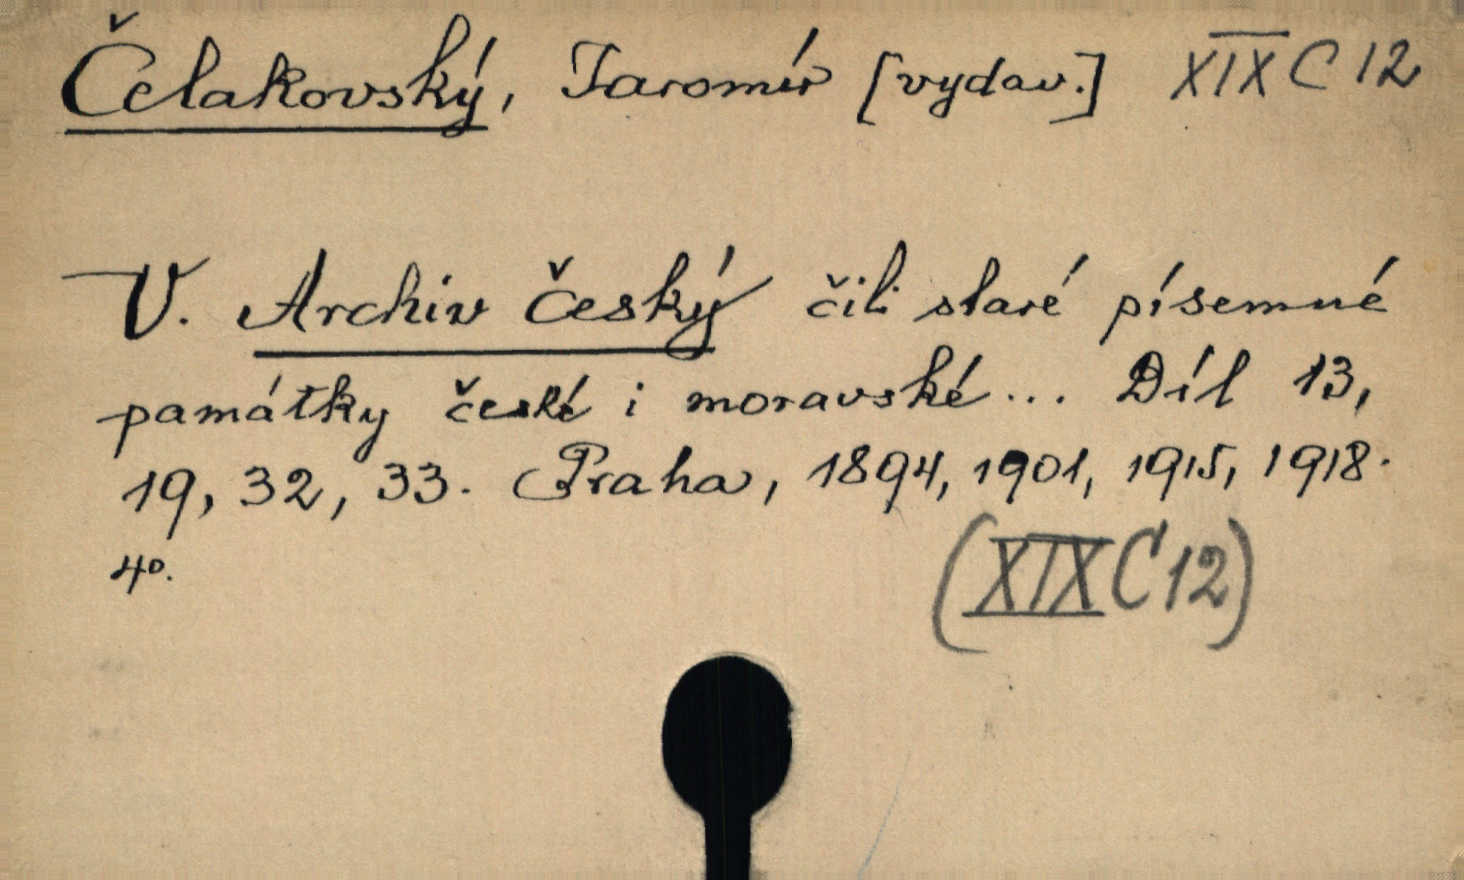 Čelakovský, Jaromír [vydav.] XIX C 12
V. Archiv český čili staré písemné
památky české i moravské... Díl 13,
19, 32, 33. Praha, 1894, 1901, 1915, 1918.
4°.
(XIX C 12)